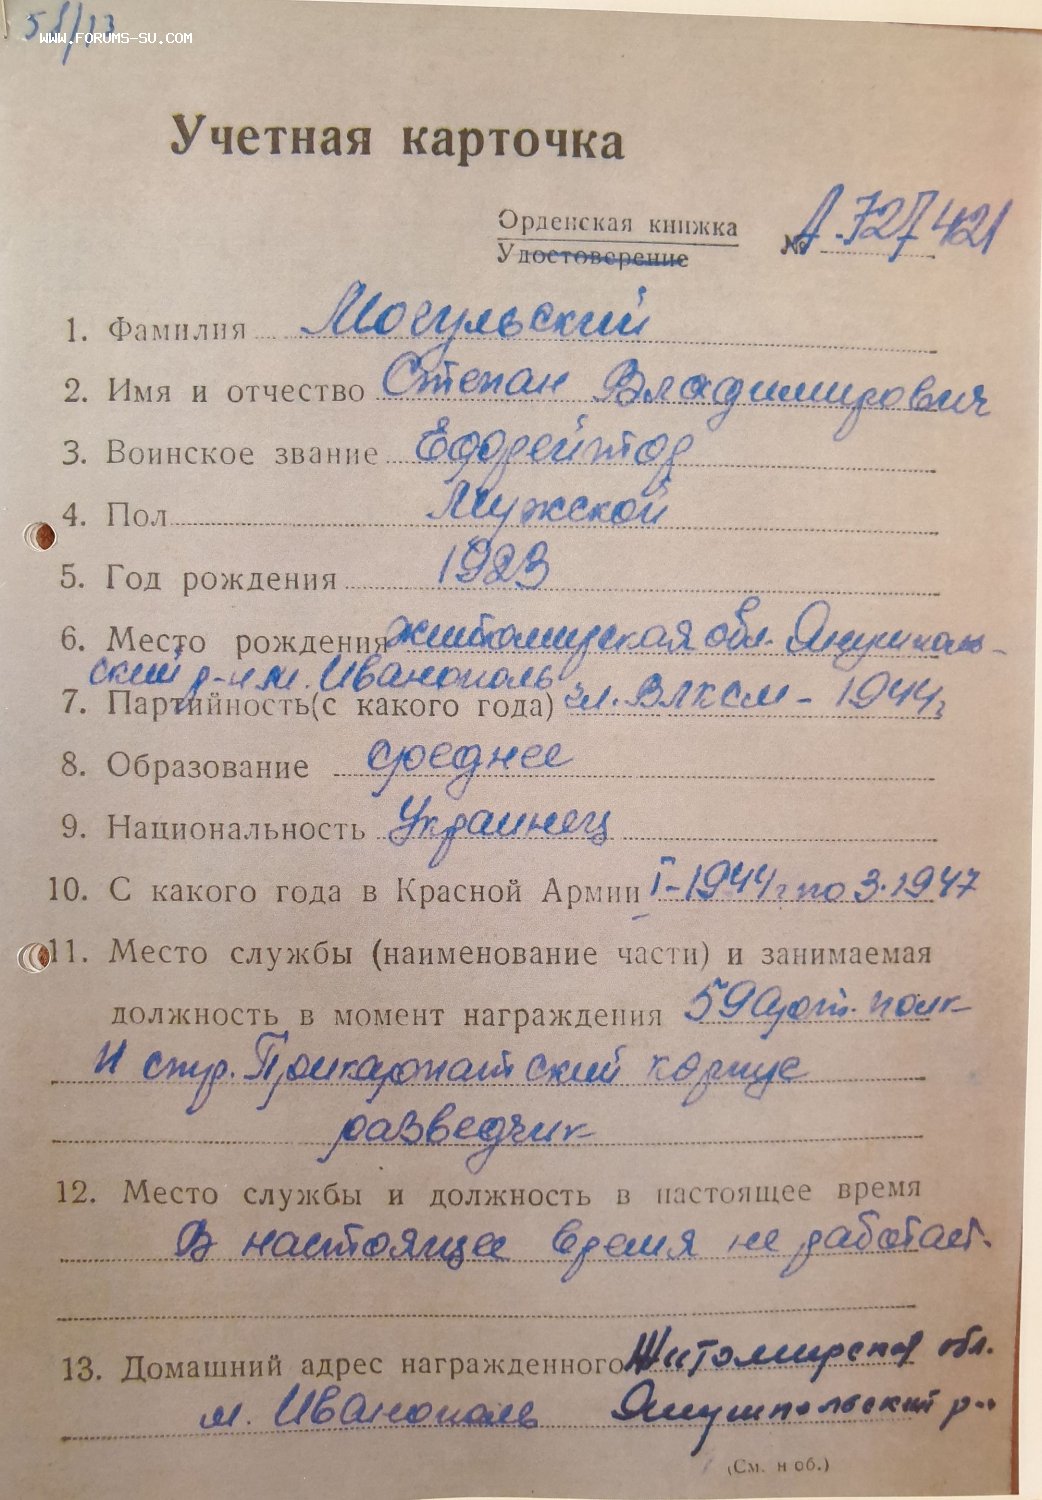 51/13
WWW.FORUMS-SU.COM
Учетная карточка
Орденская книжка
Удостоверение
№ А-727421
1. Фамилия Могульский
2. Имя и отчество Степан Владимирович
3. Воинское звание Ефрейтор
4. Пол Мужской
5. Год рождения 1923
6. Место рождения Житомирская обл. Янушполь-
ский р-н м. Иванополь
7. Партийность (с какого года) чл. ВЛКСМ - 1944г
8. Образование среднее
9. Национальность Украинец
10. С какого года в Красной Армии I-1944г по 3.1947
11. Место службы (наименование части) и занимаемая
должность в момент награждения 59 арт. полк
11 стр. Прикарпатский корпус
разведчик
12. Место службы и должность в настоящее время
В настоящее время не работает.
13. Домашний адрес награжденного Житомирская обл.
м. Иванополь Янушпольский р-н
(См. н об.)